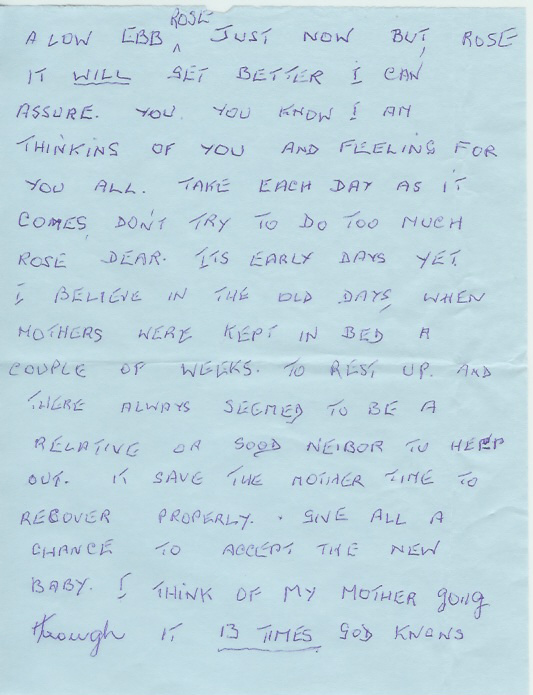 A LOW EBB ROSE JUST NOW BUT, ROSE
IT WILL GET BETTER I CAN
ASSURE. YOU. YOU KNOW I AM
THINKING OF YOU AND FEELING FOR
YOU ALL. TAKE EACH DAY AS IT
COMES, DON'T TRY TO DO TOO MUCH
ROSE DEAR. ITS EARLY DAYS YET
I BELIEVE IN THE OLD DAYS, WHEN
MOTHERS WERE KEPT IN BED A
COUPLE OF WEEKS. TO REST UP. AND
THERE ALWAYS SEEMED TO BE A
RELATIVE OR GOOD NEIBOR TO HELP
OUT. IT GAVE THE MOTHER TIME TO
RECOVER PROPERLY. . GIVE ALL A
CHANCE TO ACCEPT THE NEW
BABY. I THINK OF MY MOTHER going
through IT 13 TIMES GOD KNOWS